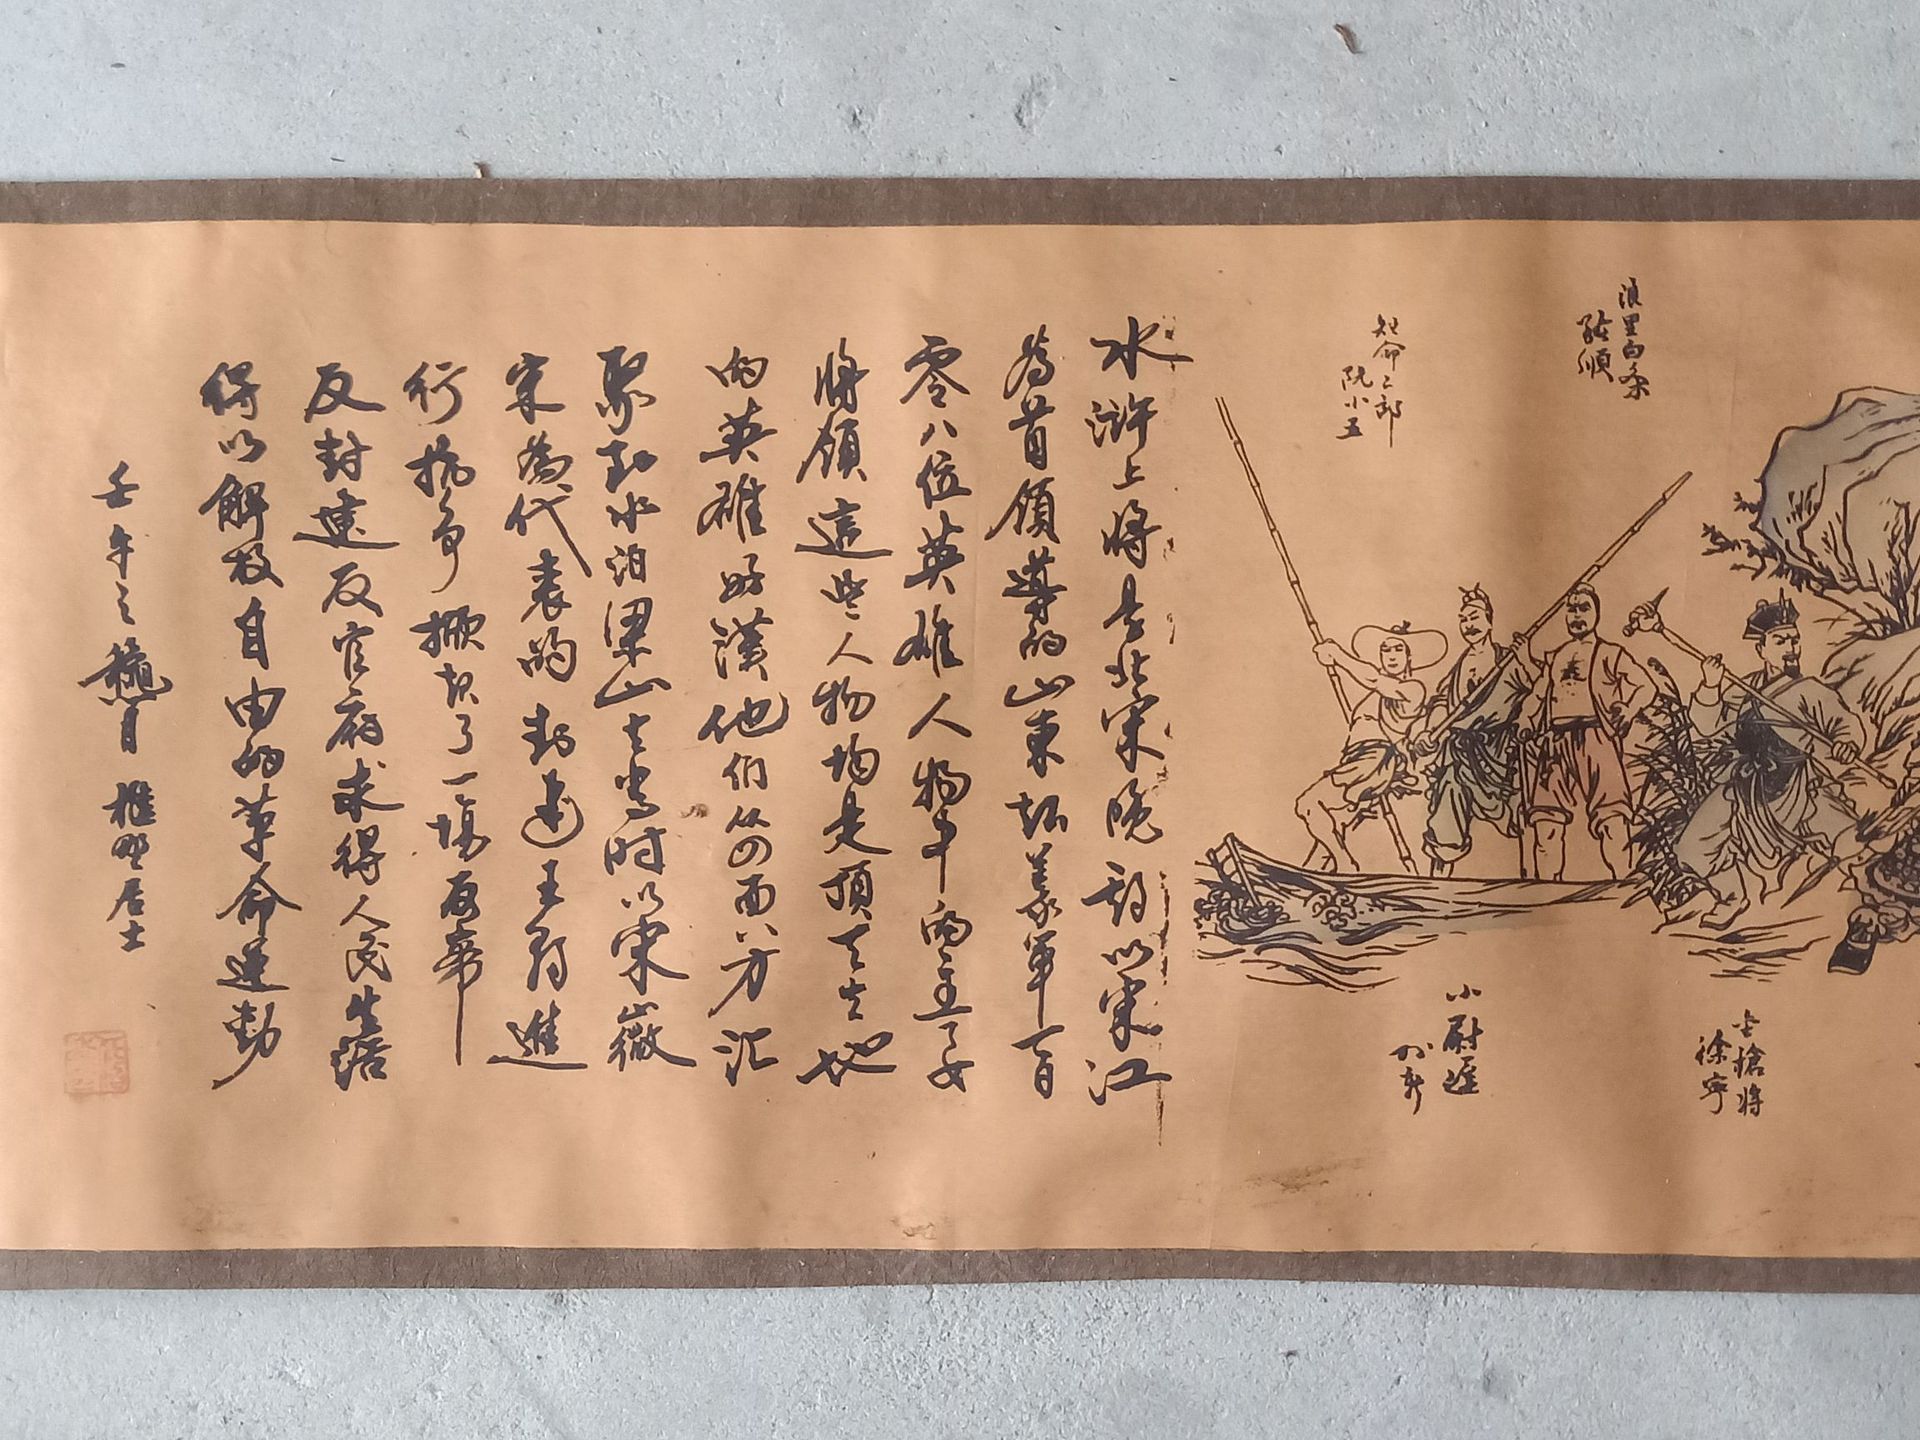 浪里白条
張順
短命二郎
阮小五
金槍將
徐寧
小尉遲
孙新
水滸上將是北宋晚期以宋江
為首領導的山東起義軍一百
零八位英雄人物中的主要
將領這些人物均是頂天立地
的英雄好漢他們从四面八方
聚到水泊梁山上當时以宋徽
宋為代表的封建王朝進
行抗争掀起了一場反帝
反封建反官府求得人民生活
得以解放自由的革命運動
壬午之 月 樵野居士